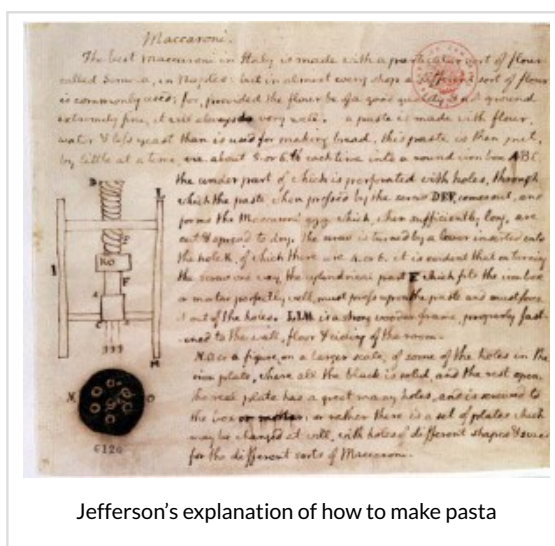 Maccaroni.
The best maccaroni in Italy is made with a particular sort of flour
called Semola, in Naples: but in almost every shop a different sort of flour
is commonly used; for, provided the flour be of a good quality, & not ground
extremely fine, it will always do very well. a paste is made with flour,
water & less yeast than is used for making bread. this paste is then put,
by little at a time, viz. about 5. or 6. lb each time into a round iron box ABC.
the under part of which is perforated with holes, through
which the paste, when pressed by the screw DEF, comes out, and
forms the Maccaroni ggg which, when sufficiently long, are
cut & spread to dry. the screw is turned by a lever inserted into
the hole K, of which there are 4. or 6. it is evident that on turning
the screw one way, the cylindrical part F which fits the iron box
or mortar perfectly well, must press upon the paste and must force
it out of the holes. LLM is a strong wooden frame, properly fast-
ened to the wall, floor & cieling of the room.
N.O. is a figure, on a larger scale, of some of the holes in the
iron plate, where all the black is solid, and the rest open.
the real plate has a great many holes, and is screwed to
the box or mortar: or rather there is a set of plates which
may be changed at will, with holes of different shapes & sizes
for the different sorts of Maccaroni.
D
L
I
E
K
F
A
M
N
O
6126
Jefferson’s explanation of how to make pasta